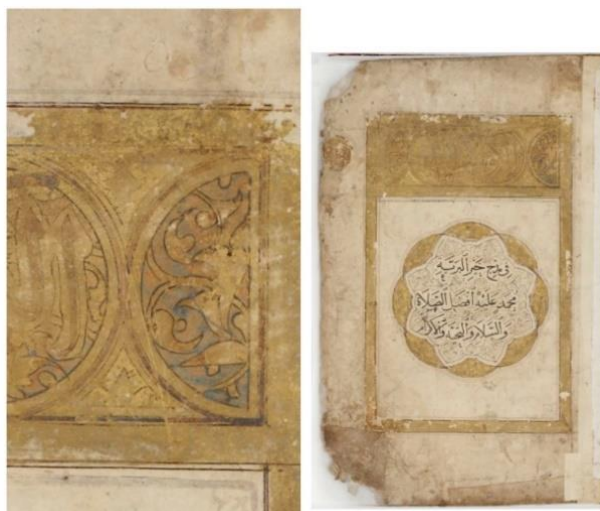 في مدح خير البرية
محمد عليه أفضل الصلاة
والسلام والتحية والاكرام